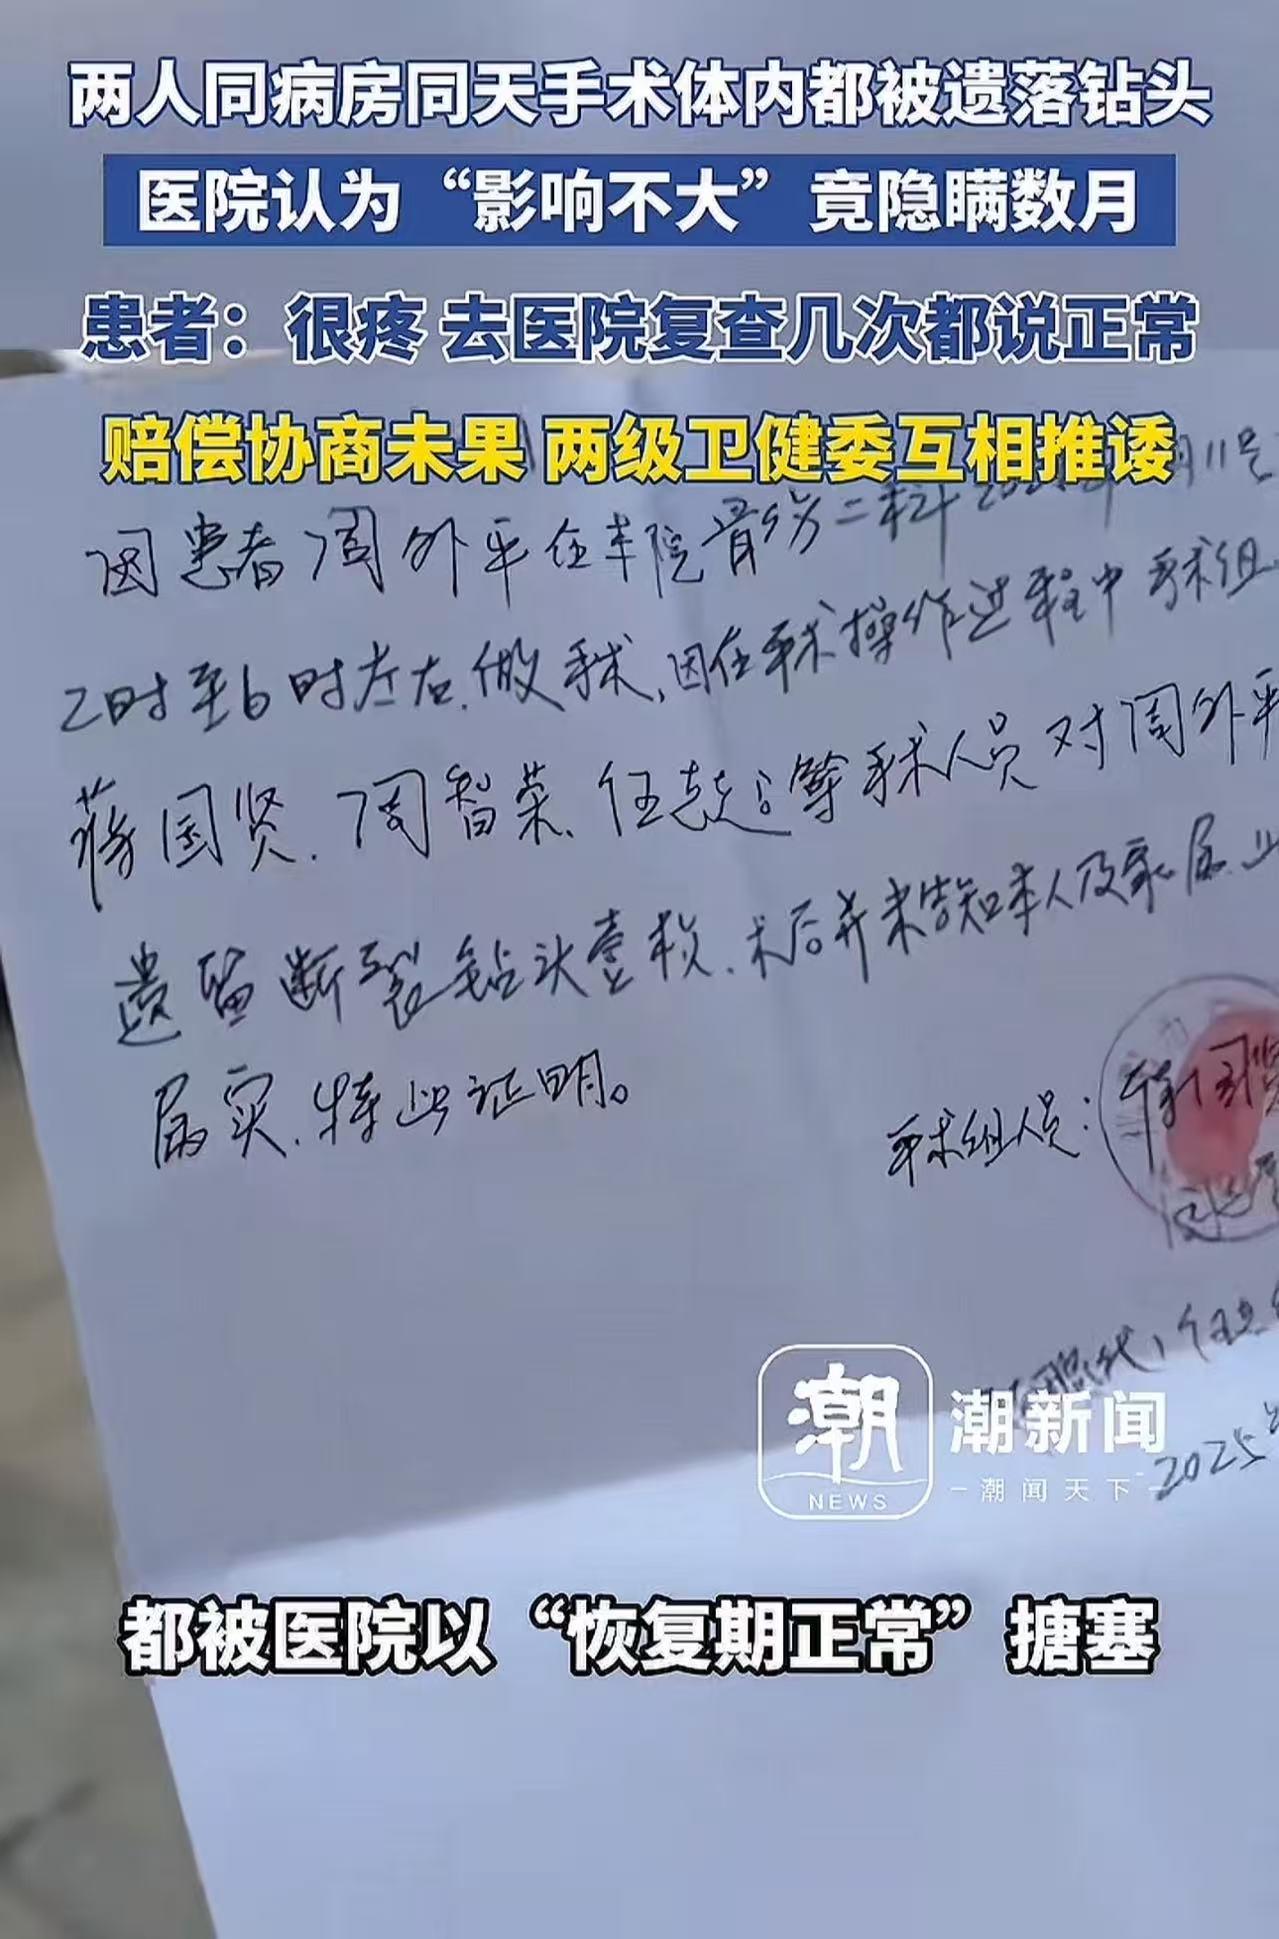 两人同病房同天手术体内都被遗落钻头
医院认为“影响不大”竟隐瞒数月
患者：很疼 去医院复查几次都说正常
赔偿协商未果 两级卫健委互相推诿
因患者周外平在本院骨伤二科 11号
2时至6时左右.做手术,因在手术操作过程中手术组
蒋国贤.周智荣.任 等手术人员对周外平
遗留断裂钻头壹枚.术后并未告知本人及家属.
属实.特此证明。
手术组人员：蒋国贤
2025年
潮
NEWS
潮新闻
潮闻天下
都被医院以“恢复期正常”搪塞